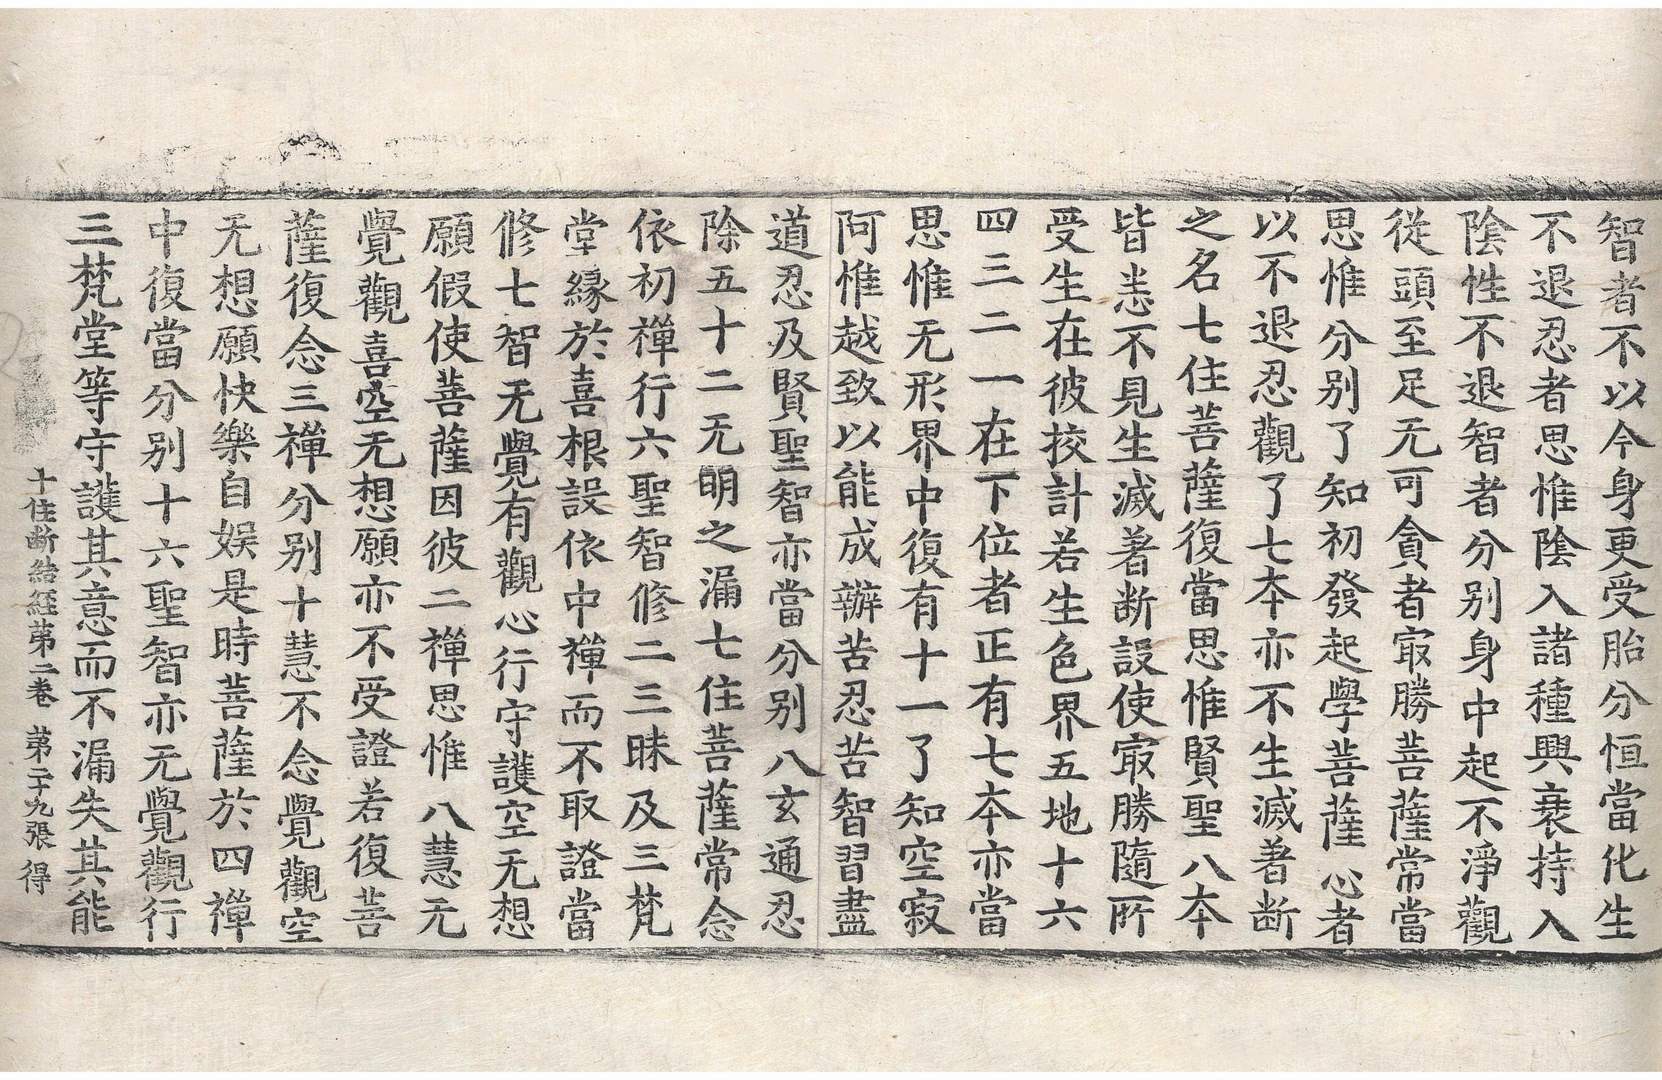 智者不以今身更受胎分恒當化生
不退忍者思惟陰入諸種興衰持入
陰性不退智者分別身中起不淨觀
從頭至足无可貪者㝡勝菩薩常當
思惟分別了知初發起學菩薩心者
以不退忍觀了七本亦不生滅著断
之名七住菩薩復當思惟賢聖八本
皆悉不見生滅著断設使㝡勝隨所
受生在彼挍計若生色界五地十六
四三二一在下位者正有七本亦當
思惟无形界中復有十一了知空寂
阿惟越致以能成辦苦忍苦智習盡
道忍及賢聖智亦當分別八玄通忍
除五十二无明之漏七住菩薩常念
依初禪行六聖智修二三昧及三梵
堂緣於喜根設依中禪而不取證當
修七智无覺有觀心行守護空无想
願假使菩薩因彼二禪思惟八慧无
覺觀喜空无想願亦不受證若復菩
薩復念三禪分別十慧不念覺觀空
无想願快樂自娛是時菩薩於四禪
中復當分別十六聖智亦无覺觀行
三梵堂等守護其意而不漏失其能
十住断結經苐二卷 苐二十九張 得